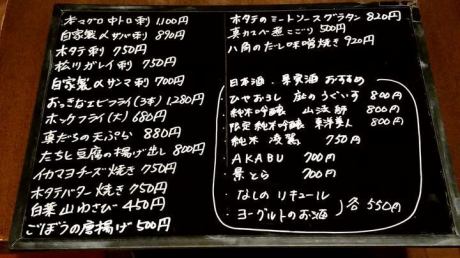 本マグロ中トロ刺 1,100円
自家製〆サバ刺 890円
ホタテ刺 750円
松川ガレイ刺 750円
自家製〆サンマ刺 700円
おっきなエビフライ(3本) 1,280円
ホッケフライ(大) 680円
真だちの天ぷら 880円
たちと豆腐の揚げ出し 800円
イカマヨチーズ焼き 750円
ホタテバター焼き 750円
白菜山わさび 450円
ごぼうの唐揚げ 500円
ホタテのミートソースグラタン 820円
真カスベ煮こごり 500円
八角のだし味噌焼き 920円
日本酒・果実酒 おすすめ
・ひやおろし 庭のうぐいす 800円
・純米吟醸 山法師 800円
・限定純米吟醸 東洋美人 800円
・純米 凌駕 750円
・AKABU 700円
・景とら 700円
・なしのリキュール
・ヨーグルトのお酒 各550円